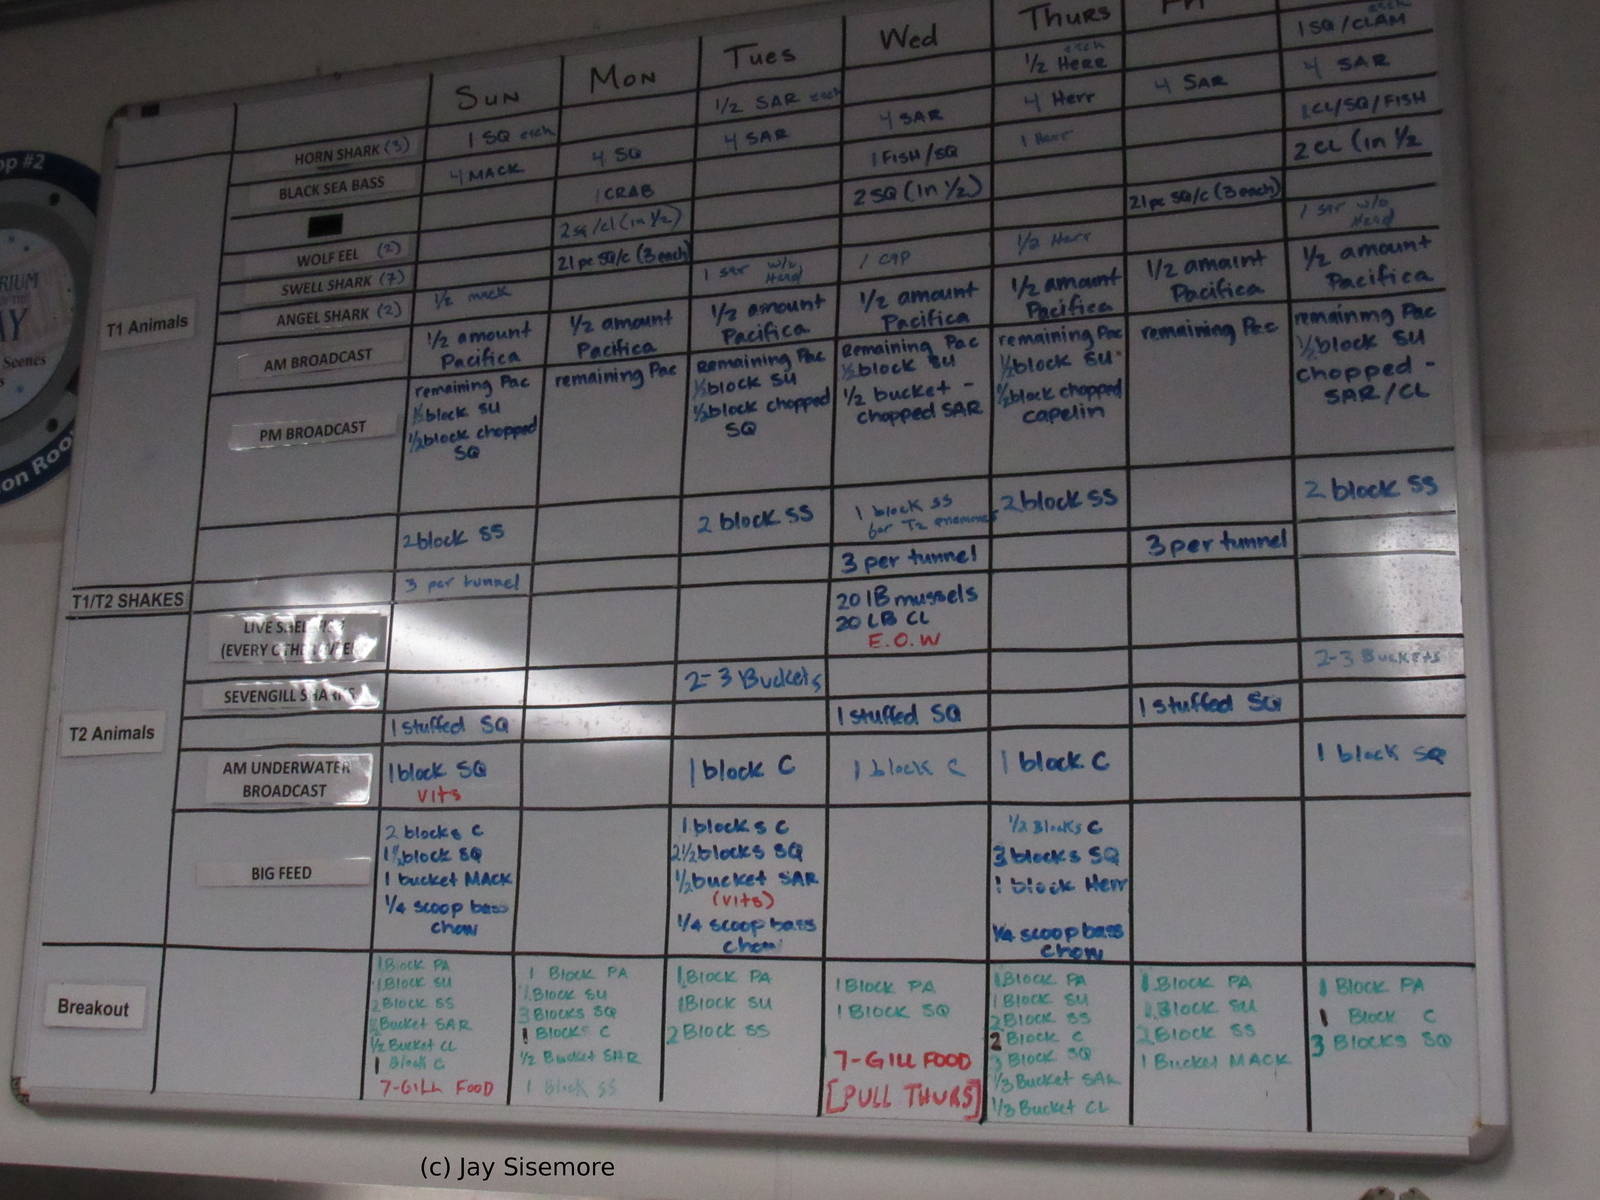 Sun
Mon
Tues
Wed
Thurs
Fri
HORN SHARK (3)
1 SQ each
1/2 SAR each
1/2 Herr each
1 SQ/CLAM each
BLACK SEA BASS
4 MACK
4 SQ
4 SAR
4 SAR
4 Herr
4 SAR
4 SAR
1 CRAB
1 FISH/SQ
1 Herr
1CL/SQ/FISH
WOLF EEL (2)
2sq/cl (in 1/2)
2 SQ (in 1/2)
2 CL (in 1/2
SWELL SHARK (7)
21 pc SQ/C (3 each)
21 pc SQ/C (3 each)
ANGEL SHARK (2)
1/2 mack
1 sar w/o Head
1 cap
1/2 Herr
1 sar w/o Head
T1 Animals
AM BROADCAST
1/2 amount
Pacifica
1/2 amount
Pacifica
1/2 amount
Pacifica
1/2 amount
Pacifica
1/2 amount
Pacifica
1/2 amount
Pacifica
1/2 amount
Pacifica
PM BROADCAST
remaining Pac
1/2 block SU
1/2 block chopped
SQ
remaining Pac
Remaining Pac
1/2 block SU
1/2 block chopped
SQ
Remaining Pac
1/2 block SU
1/2 bucket -
chopped SAR
remaining Pac
1/2 block SU
1/2 block chopped
capelin
remaining Pac
remaining Pac
1/2 block SU
chopped -
SAR/CL
2 block SS
2 block SS
1 block SS
for T2
2 block SS
2 block SS
T1/T2 SHAKES
3 per tunnel
3 per tunnel
3 per tunnel
LIVE
(EVERY
20 lB mussels
20 LB CL
E.O.W
SEVENGILL SHARKS
2-3 Buckets
2-3 Buckets
T2 Animals
1 stuffed SQ
1 stuffed SQ
1 stuffed SQ
AM UNDERWATER
BROADCAST
1 block SQ
vits
1 block C
1 block C
1 block C
1 block SQ
BIG FEED
2 blocks C
1 1/2 block SQ
1 bucket MACK
1/4 scoop bass
chow
1 blocks C
2 1/2 blocks SQ
1/2 bucket SAR
(vits)
1/4 scoop bass
chow
1/2 Blocks C
3 blocks SQ
1 block Herr
1/4 scoop bass
chow
Breakout
1 Block PA
1 Block SU
2 Block SS
Bucket SAR
1/2 Bucket CL
1 Block C
7-GILL FOOD
1 Block PA
1 Block SU
3 Blocks SQ
1 Blocks C
1/2 Bucket SAR
1 Block SS
1 Block PA
1 Block SU
2 Block SS
1 Block PA
1 Block SQ
7-GILL FOOD
[PULL THURS]
1 Block PA
1 Block SU
2 Block SS
2 Block C
3 Block SQ
1/3 Bucket SAR
1/3 Bucket CL
1 Block PA
1 Block SU
2 Block SS
1 Bucket MACK
1 Block PA
1 Block C
3 Blocks SQ
op #2
RIUM
AY
Scenes
on Roo
(c) Jay Sisemore